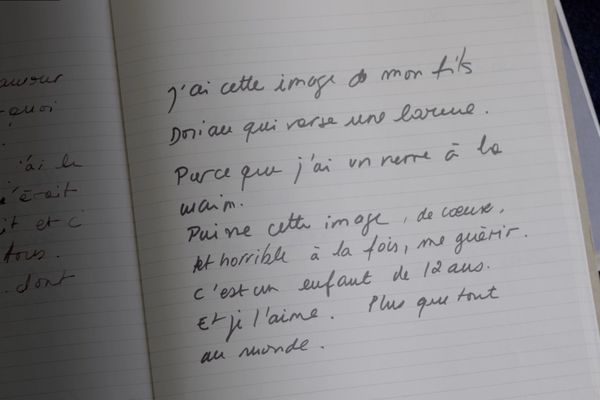 amour
quoi
.
j'ai le
c'était
it et c
tous.
dont
J'ai cette image de mon fils
Dorian qui verse une larme.
Parce que j'ai un verre à la
main.
Puisse cette image, de cœur,
et horrible à la fois, me guérir.
C'est un enfant de 12 ans.
Et je l'aime. Plus que tout
au monde.